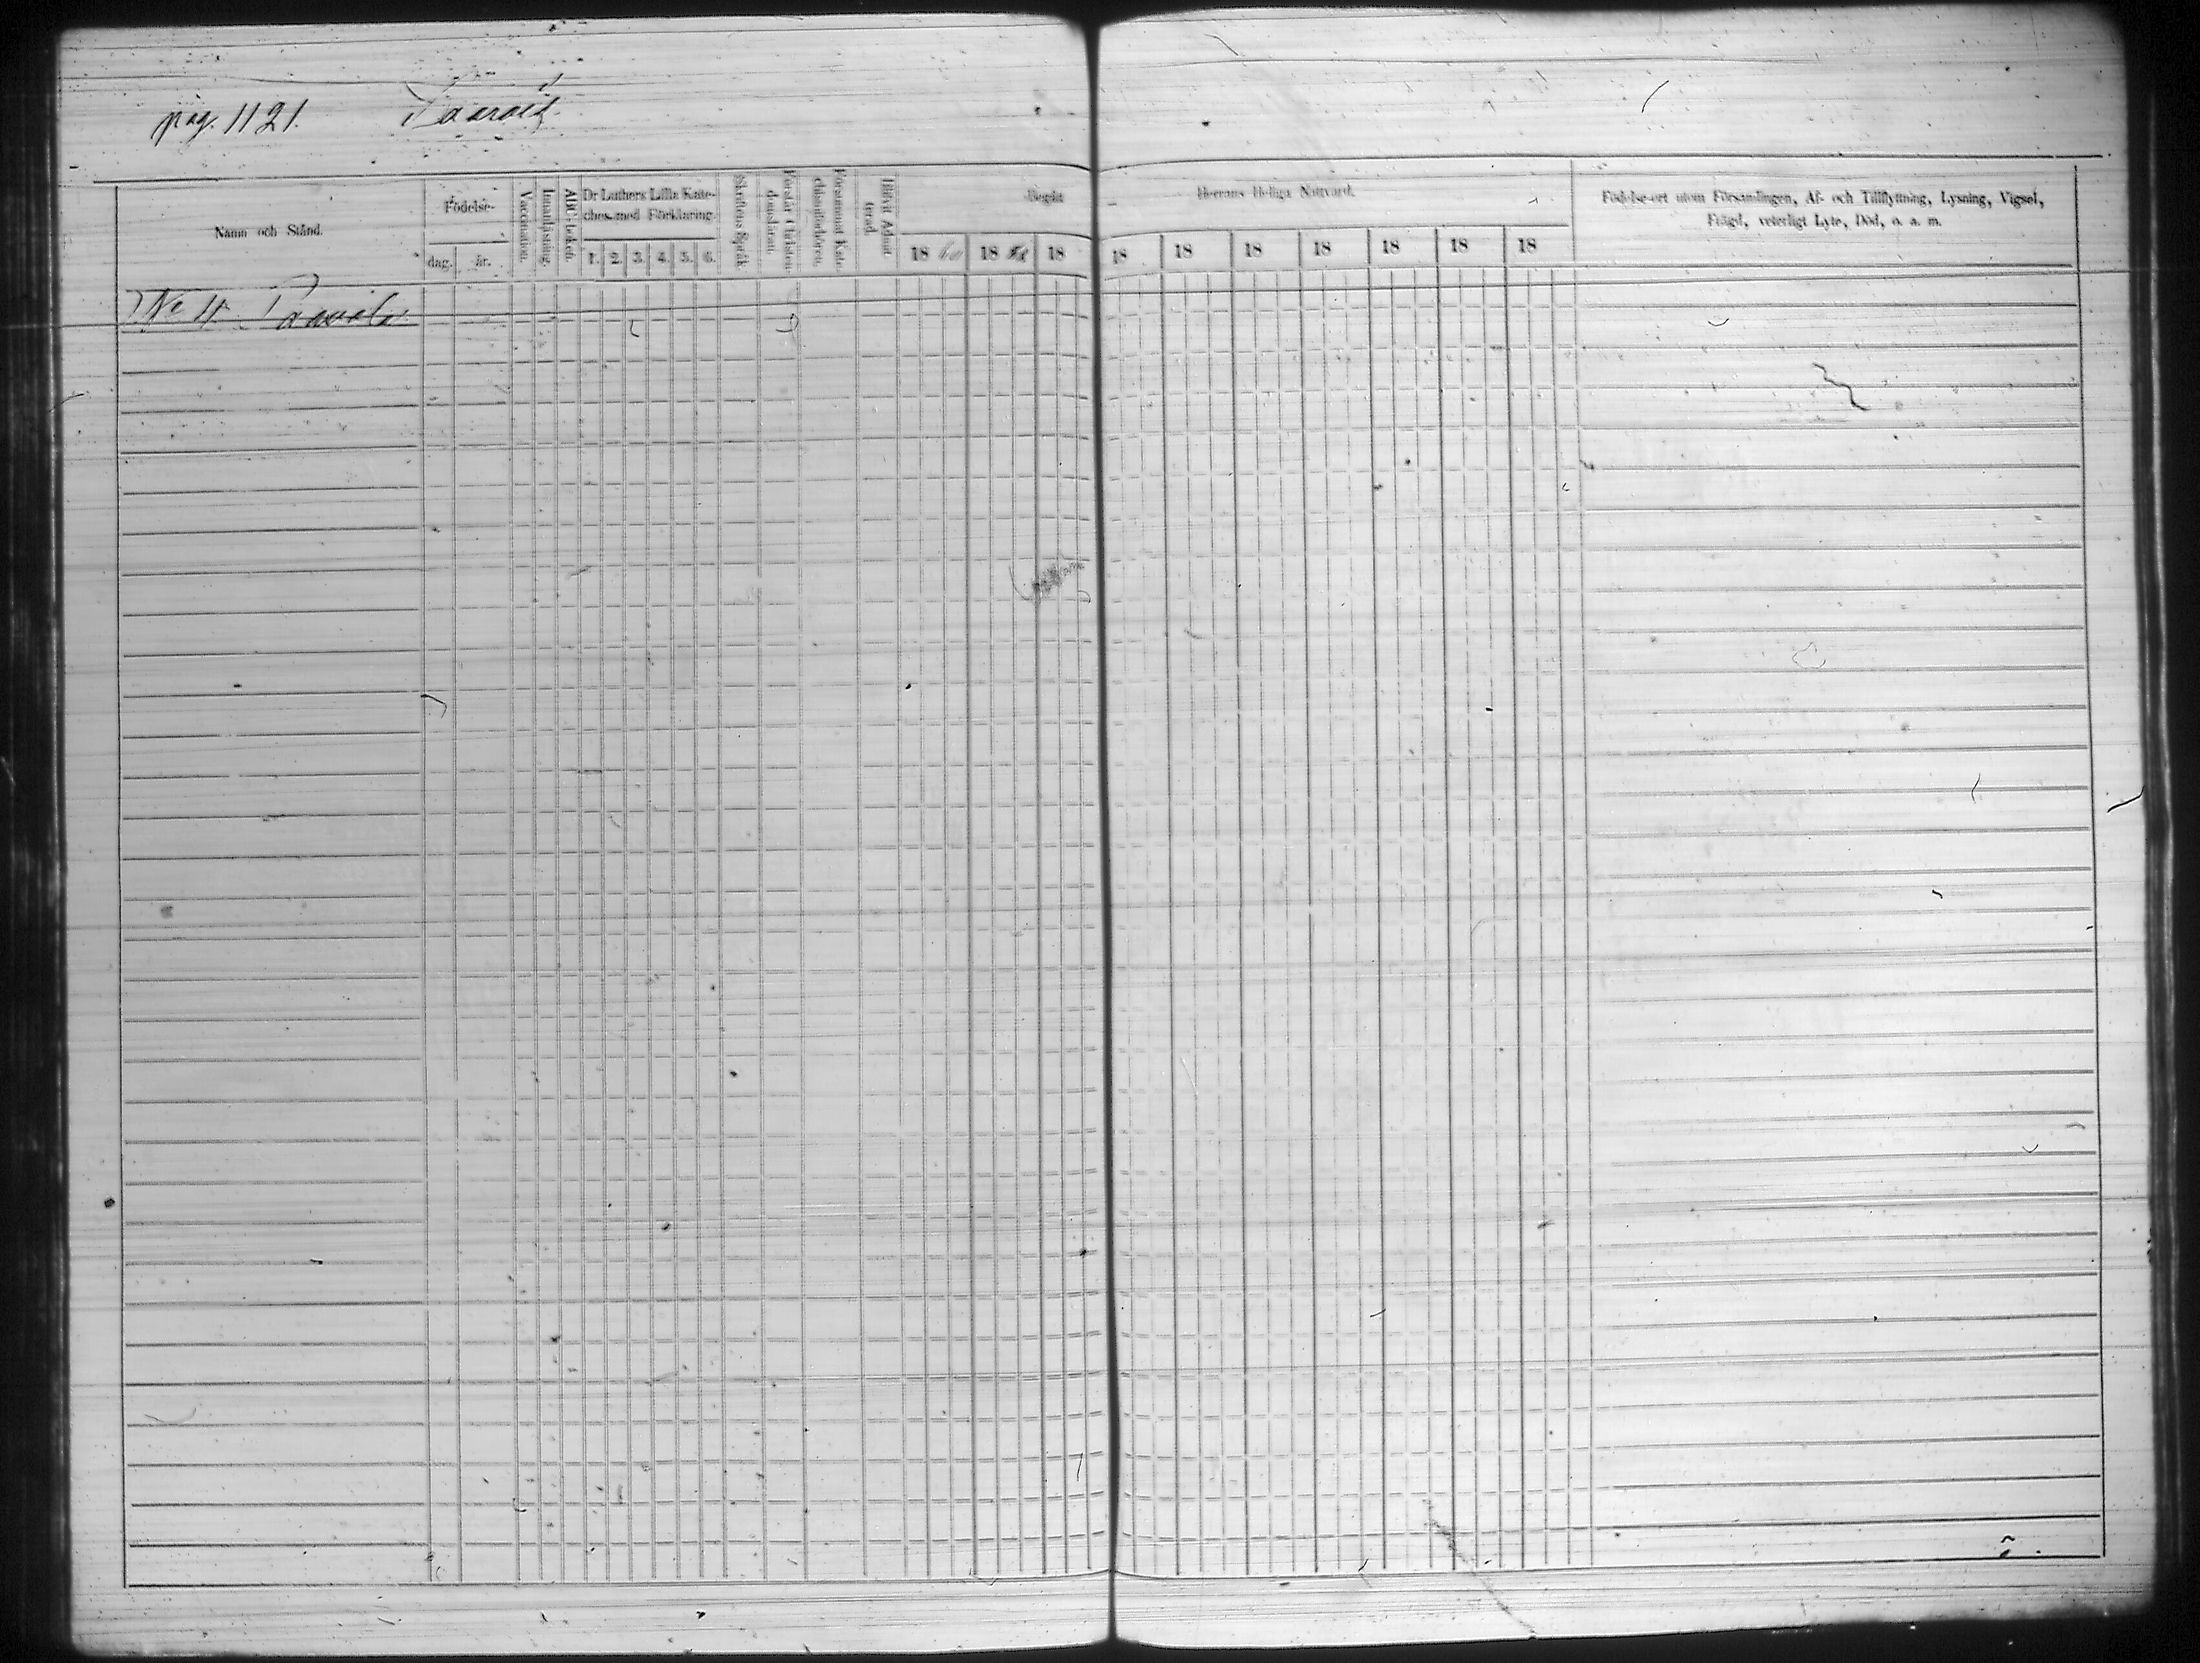 pag. 1121.
Namn och Stånd.
Födelse-
dag.
år.
Vaccination.
Innanläsning.
ABC-boken.
Dr Luthers Lilla Kate-
ches med Förklaring.
1. 2. 3. 4. 5. 6.
Skriftens Språk.
Förstår Christen-
domsläran.
Försummat Kate-
chismiförhören.
Blifvit Admit-
terad.
Begått
Herrans Heliga Nattvard.
18 18 18 18 18 18 18 18 18 18
Födelse-ort utom Församlingen, Af- och Tillflyttning, Lysning, Vigsel,
Frägd, veterligt Lyte, Död, o. a. m.
No 4